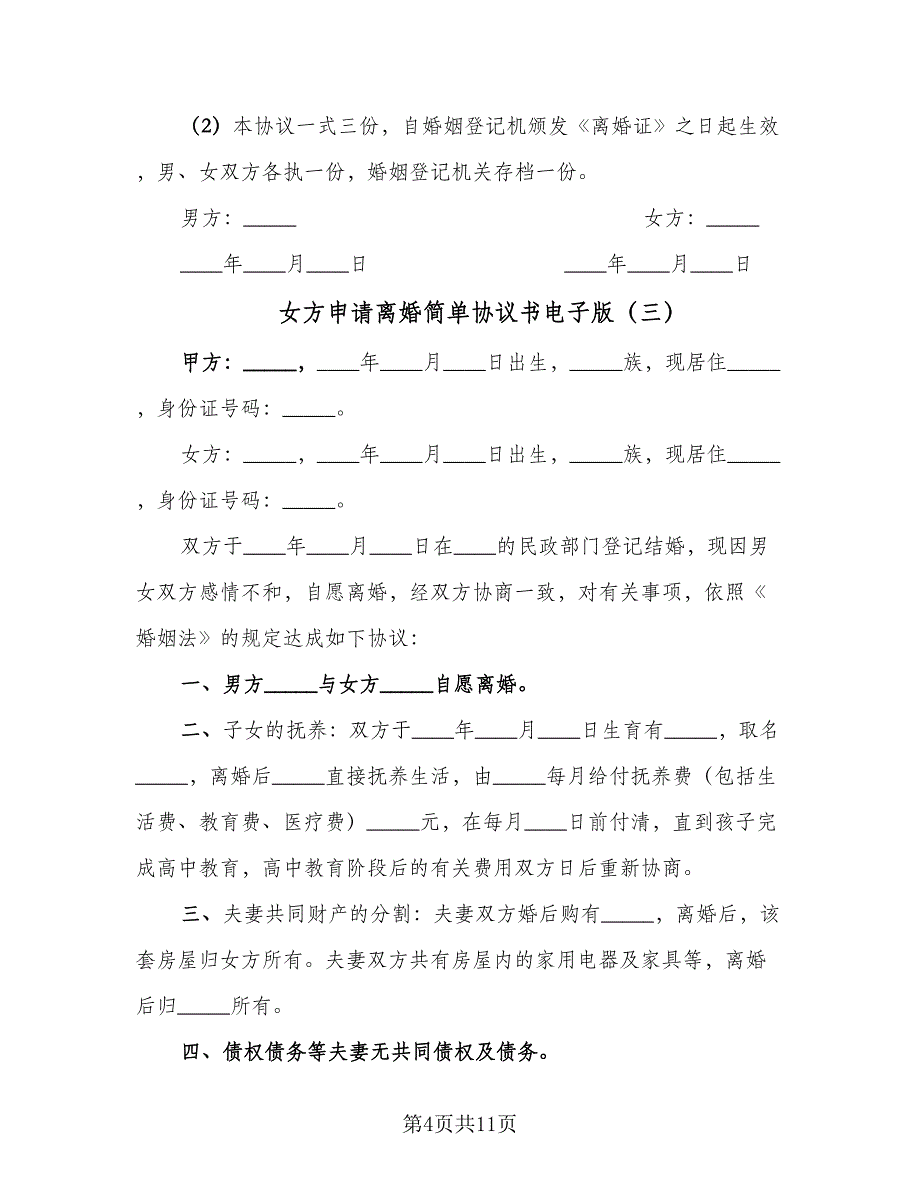 （2）本协议一式三份，自婚姻登记机颁发《离婚证》之日起生效
，男、女双方各执一份，婚姻登记机关存档一份。
男方：_____ 女方：_____
____年____月____日 ____年____月____日
女方申请离婚简单协议书电子版（三）
甲方：_____，____年____月____日出生，_____族，现居住_____
，身份证号码：_____。
女方：_____，____年____月____日出生，_____族，现居住_____
，身份证号码：_____。
双方于____年____月____日在____的民政部门登记结婚，现因男
女双方感情不和，自愿离婚，经双方协商一致，对有关事项，依照《
婚姻法》的规定达成如下协议：
一、男方_____与女方_____自愿离婚。
二、子女的抚养：双方于____年____月____日生育有_____，取名
_____，离婚后_____直接抚养生活，由_____每月给付抚养费（包括生
活费、教育费、医疗费）_____元，在每月____日前付清，直到孩子完
成高中教育，高中教育阶段后的有关费用双方日后重新协商。
三、夫妻共同财产的分割：夫妻双方婚后购有_____，离婚后，该
套房屋归女方所有。夫妻双方共有房屋内的家用电器及家具等，离婚
后归_____所有。
四、债权债务等夫妻无共同债权及债务。
第4页共11页